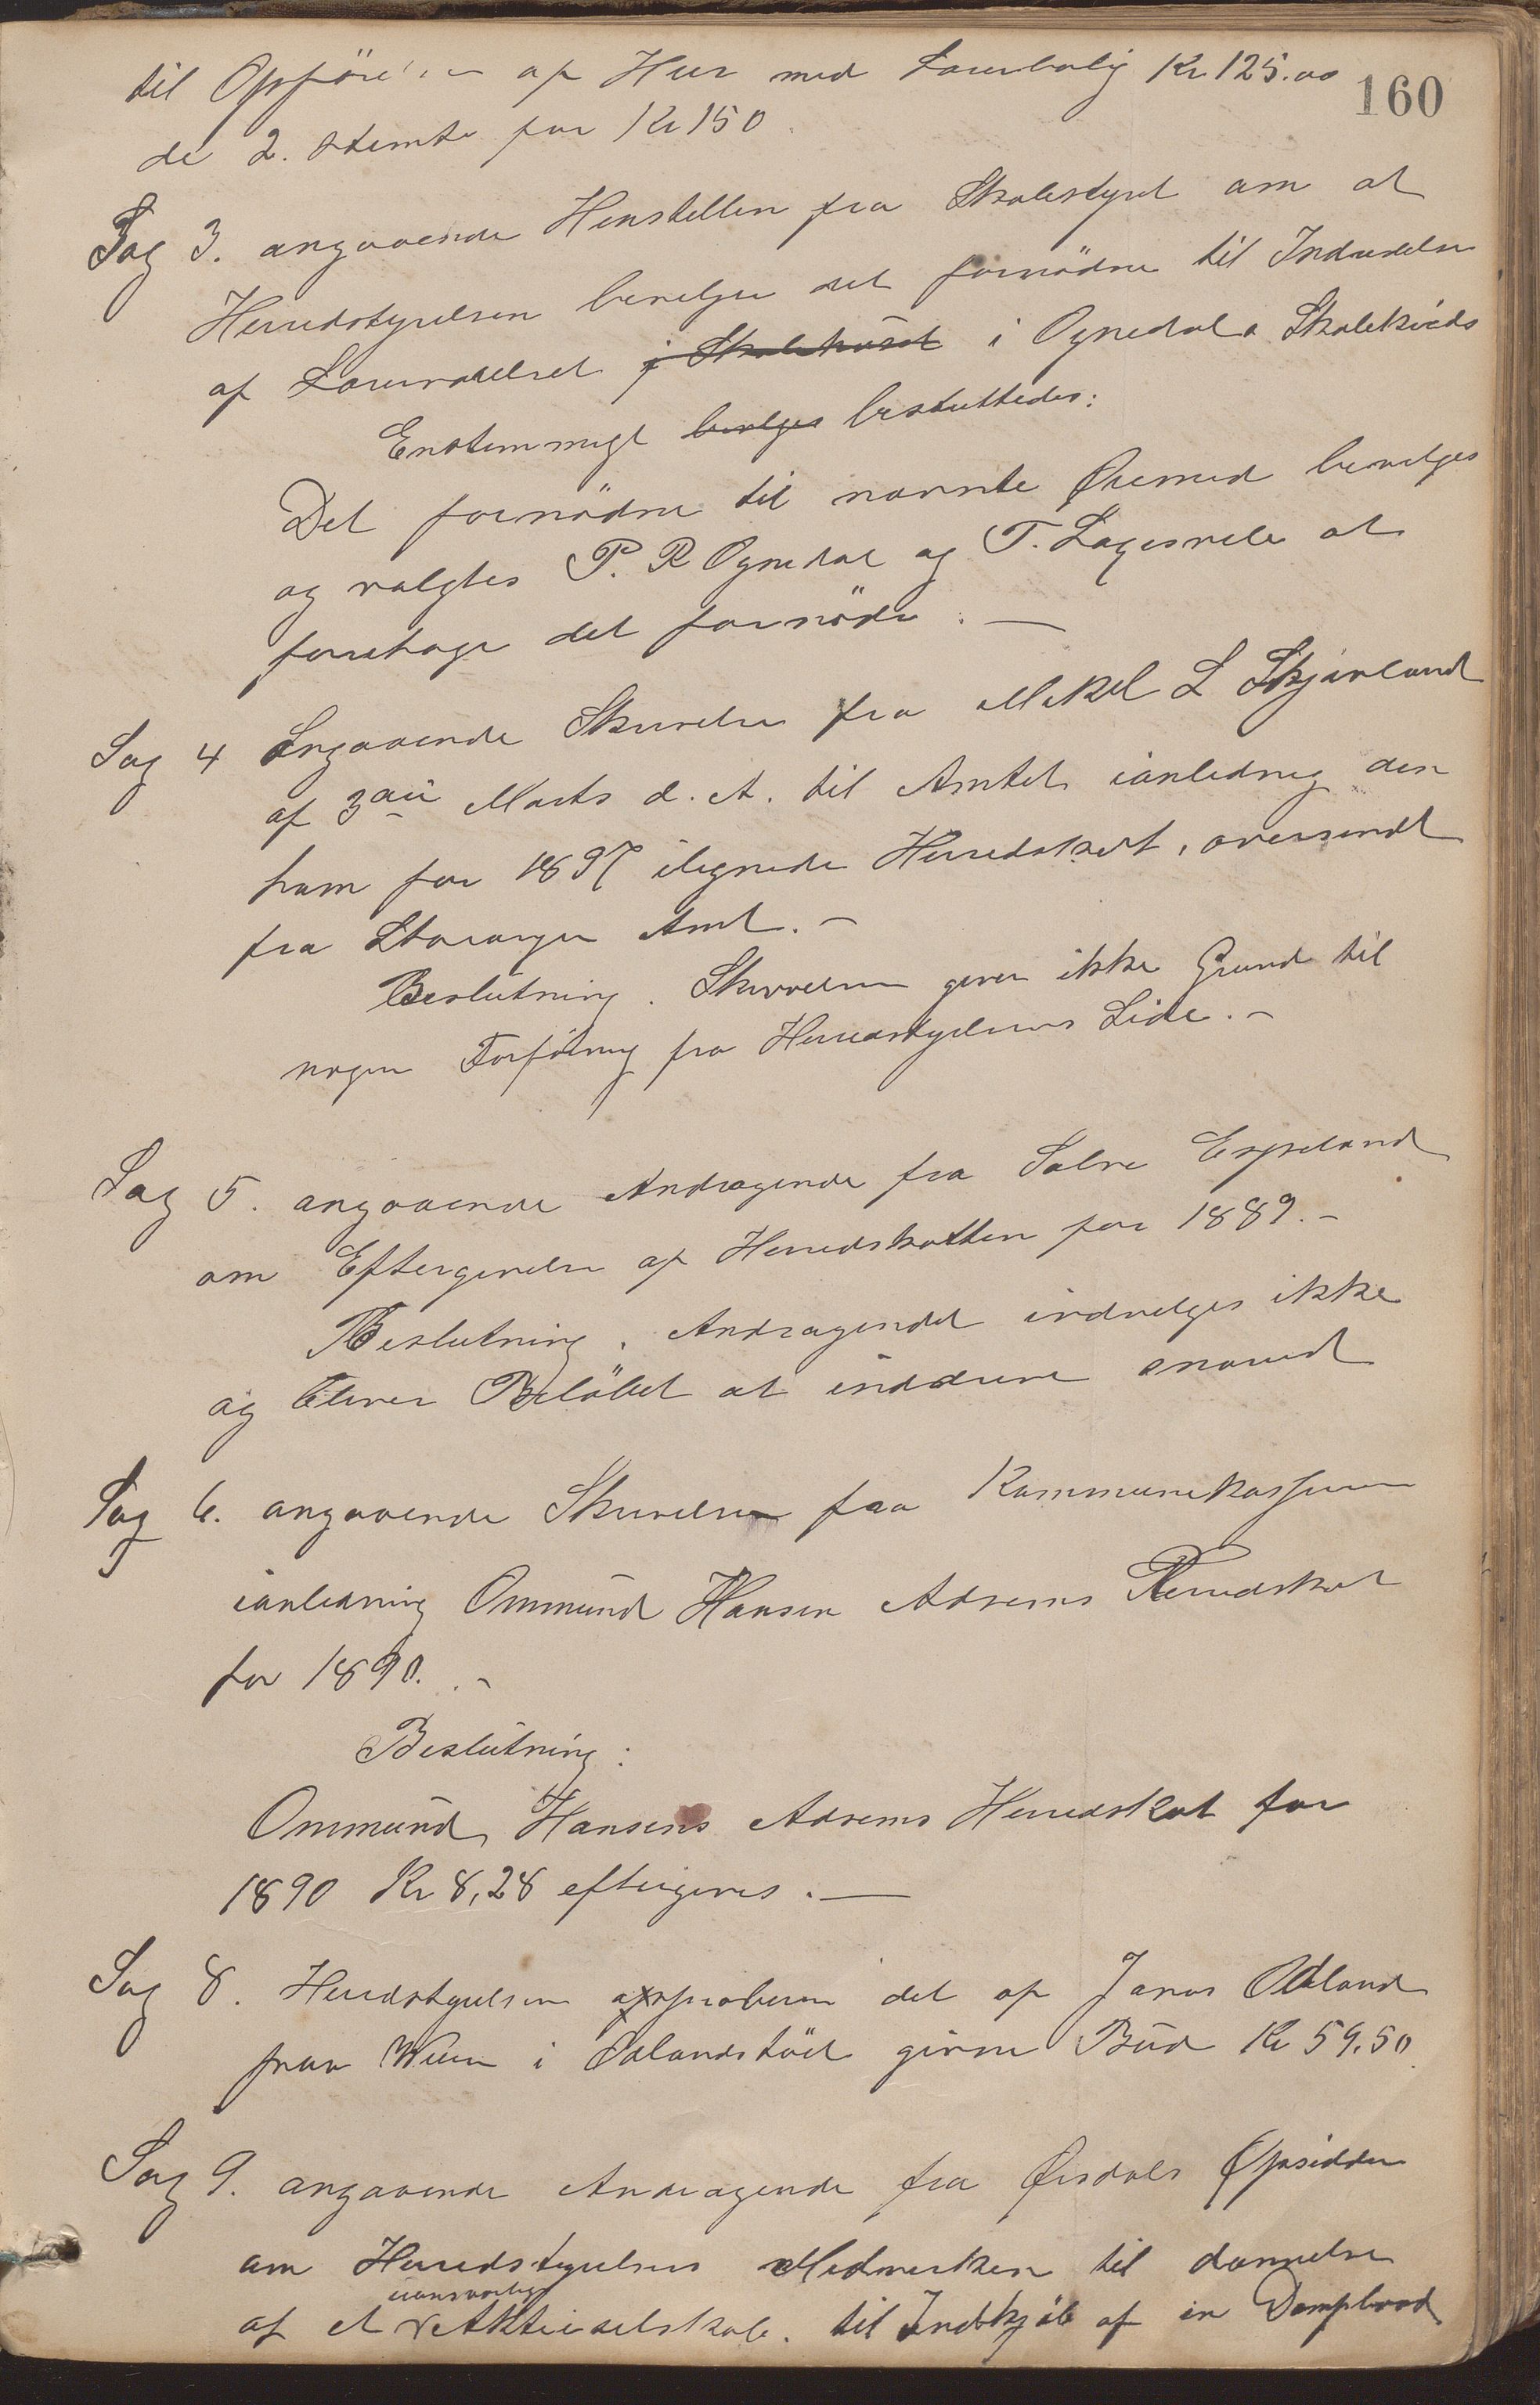 160
til Opförelse af Hus med Lærerbolig Kr 125.00
de 2. stemte for Kr 150.
Sag 3. angaaende Henstillen fra Skolestyret om at
Herredstyrelsen bevilger det fornödne til Indredelse
af Læreværelset i Skolehuset i Ognedals Skolekreds
Enstemmigt bevilges besluttedes:
Det fornödne til nævnte Øiemed bevilges
og valgtes P. R Ognedal og T. Lagesvele at
foretage det fornödne. —
Sag 4 Angaaende Skrivelse fra Mikal L Skjæveland
af 3die Marts d. A. til Amtet ianledning den
ham for 1897 ilignede Herredskat, oversendt
fra Stavanger Amt. –
Beslutning. Skrivelsen giver ikke Grund til
nogen Forföining fra Herredstyrelsens Side. –
Sag 5. angaaende Andragende fra Salve Espeland
om Eftergivelse af Herredskatten for 1889. –
Beslutning. Andragendet indvilges ikke
og bliver Belöbet at inddrive snarest
Sag 6. angaaende Skrivelse fra Kommunekassereren
ianledning Ommund Hansen Adsems Herredskat
for 1890. –
Beslutning:
Ommund Hansens Adsems Herredskat for
1890 Kr 8,28 eftergives. —
Sag 8. Herredstyrelsen approberer det af Janas Ødland
paa Veien i Ødlandstöet givne Bud Kr 59.50.
Sag 9. angaaende Andragende fra Ørsdals Opsiddere
om Herredstyrelsens Medvirken til dannelse
uansvarligt
af et Aktieselskab. til Indkjöb af en Dampbaad